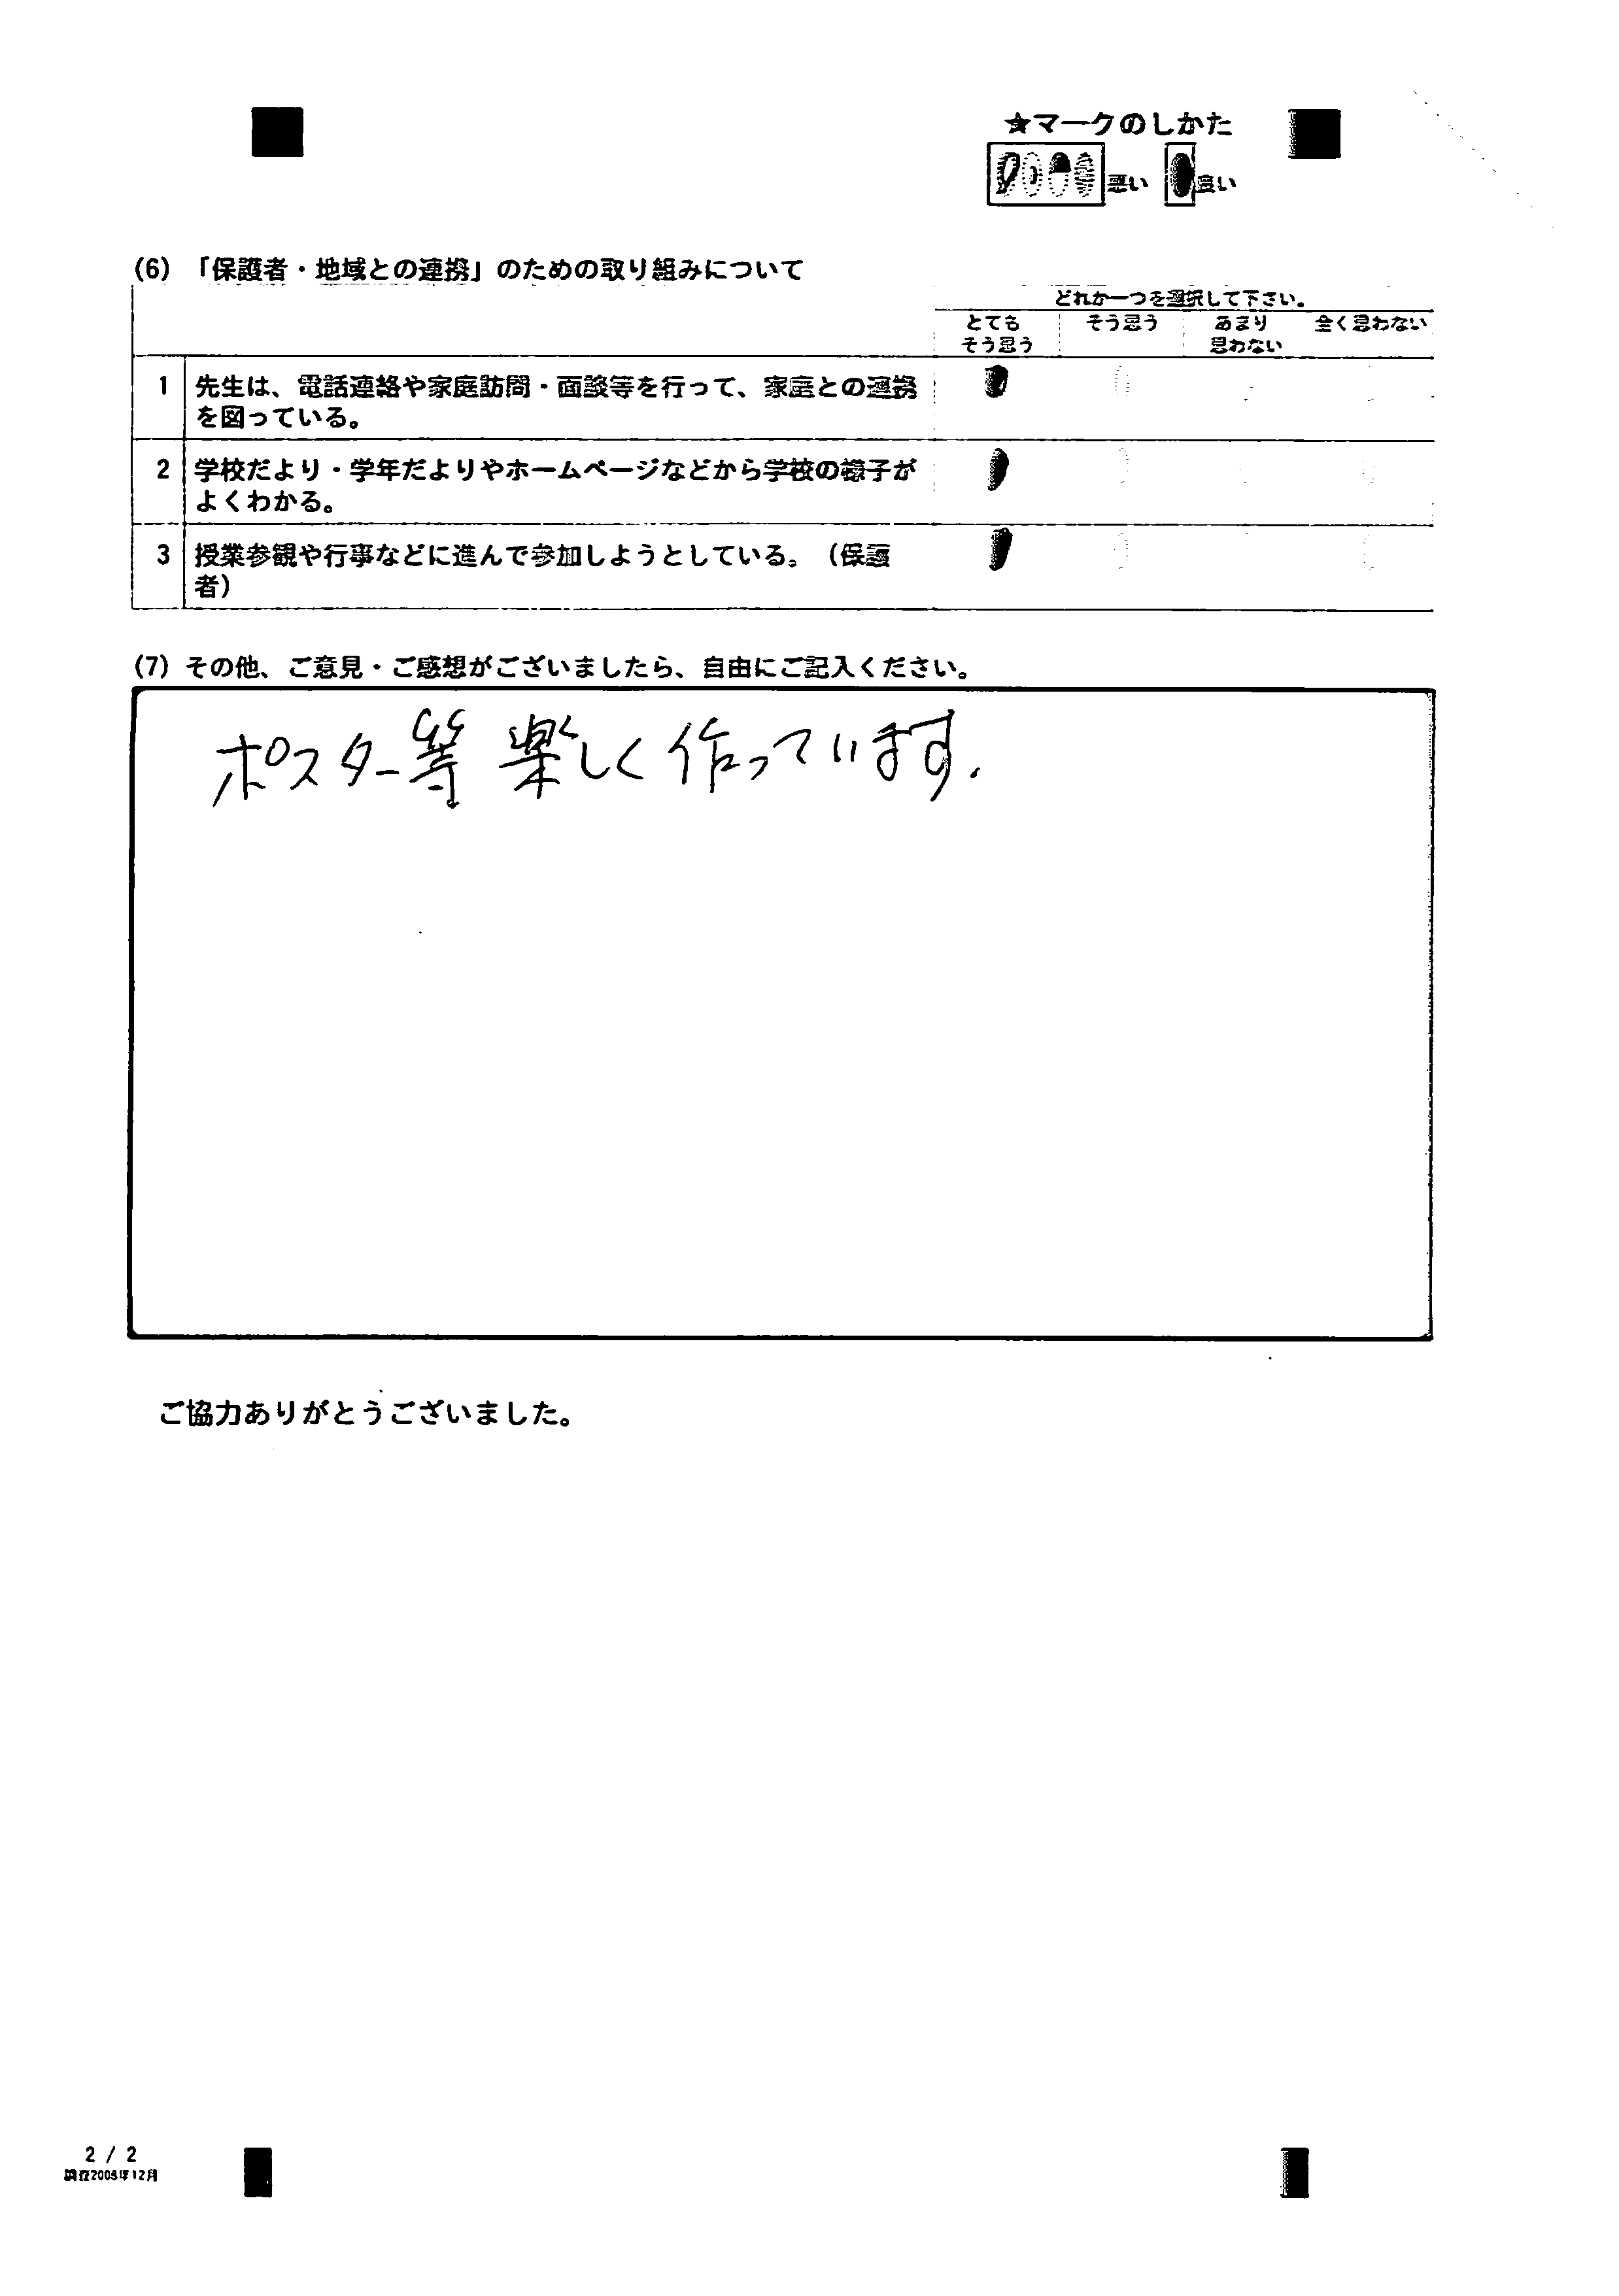 ★マークのしかた
悪い 良い
(6) 「保護者・地域との連携」のための取り組みについて
どれか一つを選択して下さい。
とても そう思う あまり 全く思わない
そう思う 思わない
1 先生は、電話連絡や家庭訪問・面談等を行って、家庭との連携
を図っている。
2 学校だより・学年だよりやホームページなどから学校の様子が
よくわかる。
3 授業参観や行事などに進んで参加しようとしている。（保護
者）
(7) その他、ご意見・ご感想がございましたら、自由にご記入ください。
ポスター等 楽しく作っています.
ご協力ありがとうございました。
2 / 2
調査2008年12月